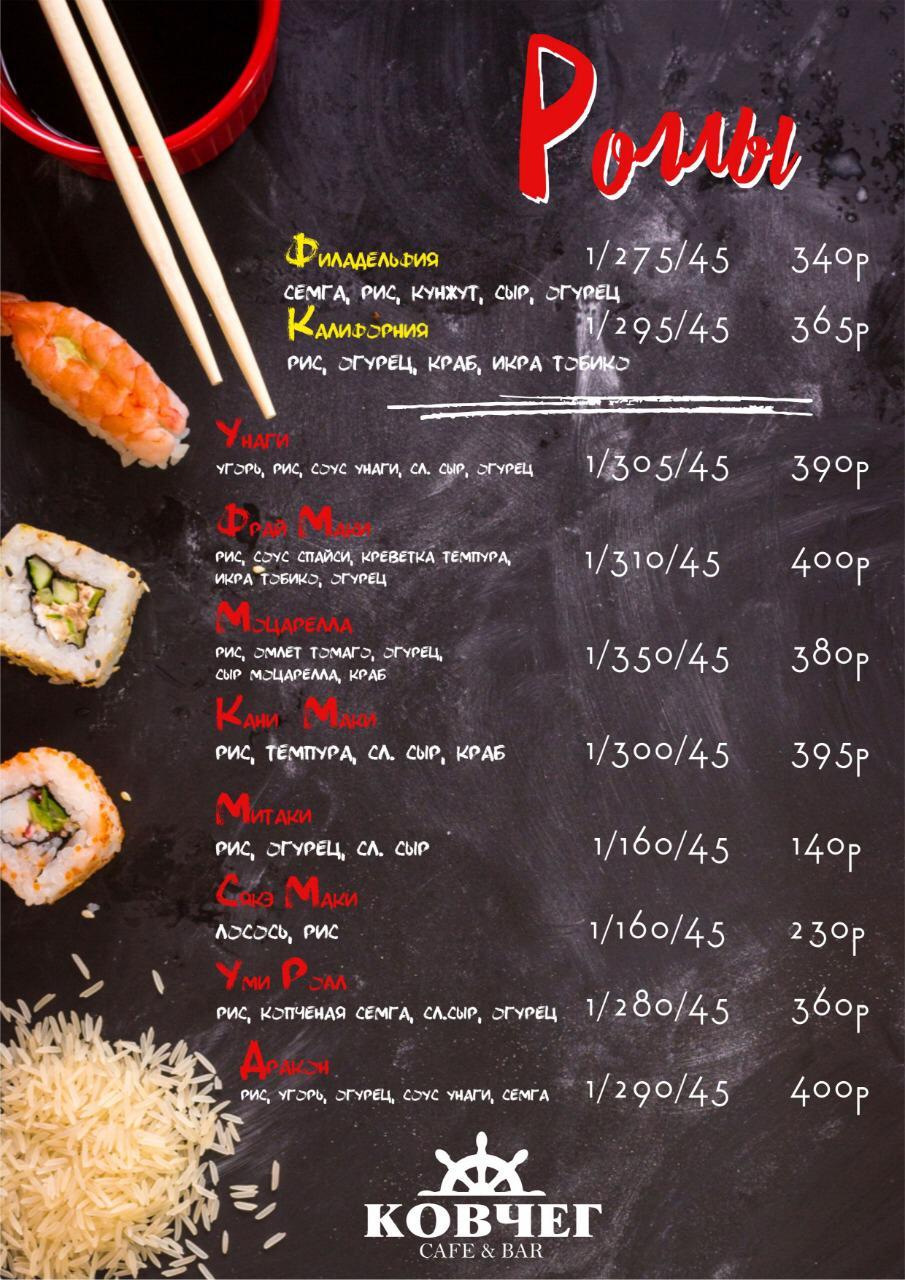 Роллы
Филадельфия 1/275/45 340р
семга, рис, кунжут, сыр, огурец
Калифорния 1/295/45 365р
рис, огурец, краб, икра тобико
Унаги
угорь, рис, соус унаги, сл. сыр, огурец 1/305/45 390р
Фрай Маки
рис, соус спайси, креветка темпура, 1/310/45 400р
икра тобико, огурец
Моцарелла
рис, омлет томаго, огурец, 1/350/45 380р
сыр моцарелла, краб
Кани Маки
рис, темпура, сл. сыр, краб 1/300/45 395р
Митаки
рис, огурец, сл. сыр 1/160/45 140р
Сякэ Маки
лосось, рис 1/160/45 230р
Уми Ролл
рис, копченая семга, сл.сыр, огурец 1/280/45 360р
Дракон
рис, угорь, огурец, соус унаги, семга 1/290/45 400р
КОВЧЕГ
CAFE & BAR